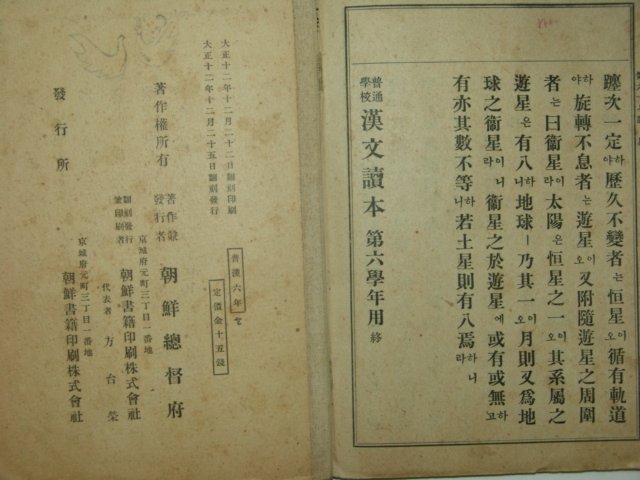 躔次一定하야歷久不變者는恒星이오循有軌道
하야旋轉不息者는遊星이오又附隨遊星之周圍
者는曰衞星이라太陽은恒星之一이오其系屬之
遊星은有八하니地球ㅣ乃其一이오月則又爲地
球之衞星이라衞星之於遊星에或有或無하고
有亦其數不等하니若土星則有八焉하니라
普通學校漢文讀本 第六學年用 終
大正十二年十二月二十二日翻刻印刷
大正十二年十二月二十五日翻刻發行
普漢六年
定價金十五錢
著作權所有
著作兼發行者 朝鮮總督府
京城府元町三丁目一番地
翻刻發行兼印刷者 朝鮮書籍印刷株式會社
代表者 方台榮
京城府元町三丁目一番地
發行所 朝鮮書籍印刷株式會社